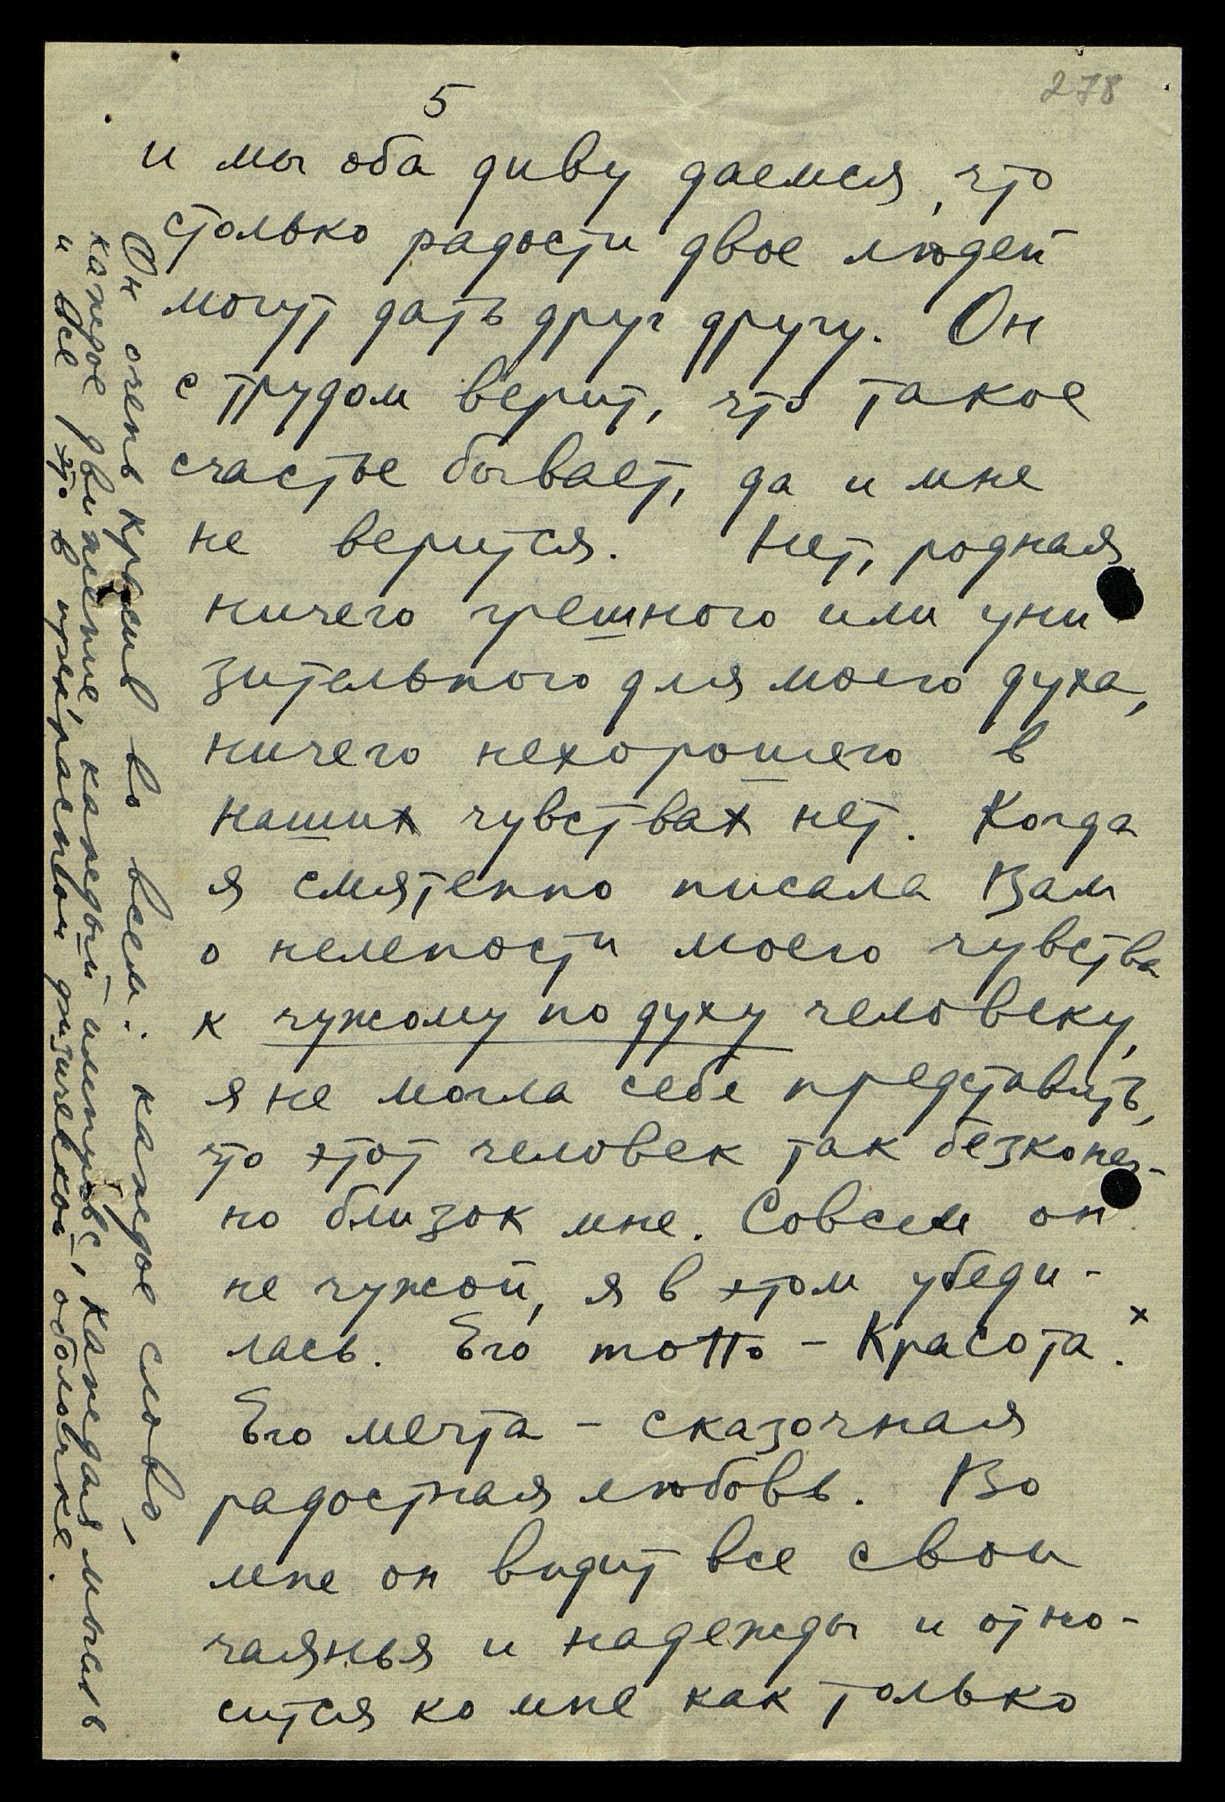 278
5
и мы оба диву даемся, что
столько радости двое людей
могут дать друг другу. Он
с трудом верит, что такое
счастье бывает, да и мне
не верится. Нет, родная
ничего грешного или уни
зительного для моего духа,
ничего нехорошего в
наших чувствах нет. Когда
я смятенно писала Вам
о нелепости моего чувства
к чужому по духу человеку,
я не могла себе представить,
что этот человек так безконеч-
но близок мне. Совсем он
не чужой, я в этом убеди-
лась. Его motto - Красота.x
Его мечта - сказочная
радостная любовь. Во
мне он видит все свои
чаянья и надежды и отно-
сится ко мне как только
Он очень красив во всем: каждое слово,
каждое движение, каждый импульс, каждая мысль
и все это в прекрасной физической оболочке.